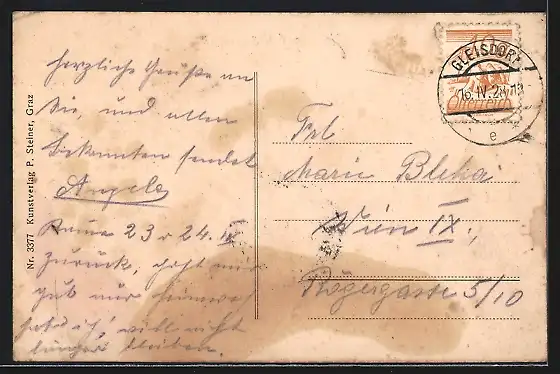 herzliche Grüße an
Sie, und allen
Bekannten sendet
Angela
Komme 23 o 24. IV
zurück, geht mir
gut nur Heimweh
hab ich, will nicht
länger bleiben.
Nr. 3377 Kunstverlag P. Steiner, Graz
10
Österreich
GLEISDORF
16.IV.28
e
Frl
Marie Bleha
Wien IX.,
Rögergasse 5/10